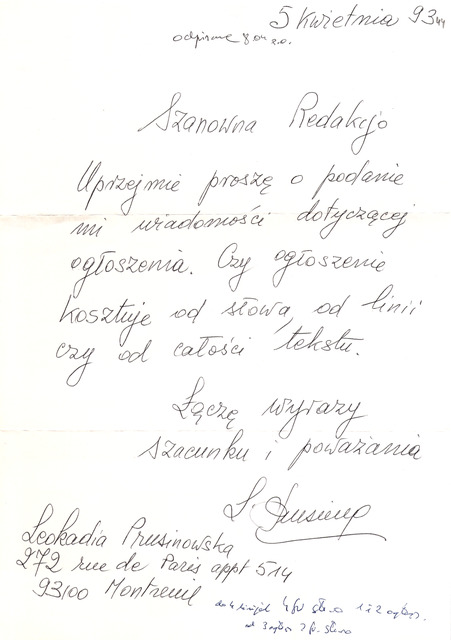 5 kwietnia 93
odpisane 8.04
Szanowna Redakcjo
Uprzejmie proszę o podanie
mi wiadomości dotyczącej
ogłoszenia. Czy ogłoszenie
kosztuje od słowa, od linii
czy od całości tekstu.
Łączę wyrazy
szacunku i poważania
L. Prusinow
Leokadia Prusinowska
272 rue de Paris appt 514
93100 Montreuil
do 4 linijek 4 fr słowo 1 i 2 ogłosz.
od 3 ogłosz 3 fr. słowo